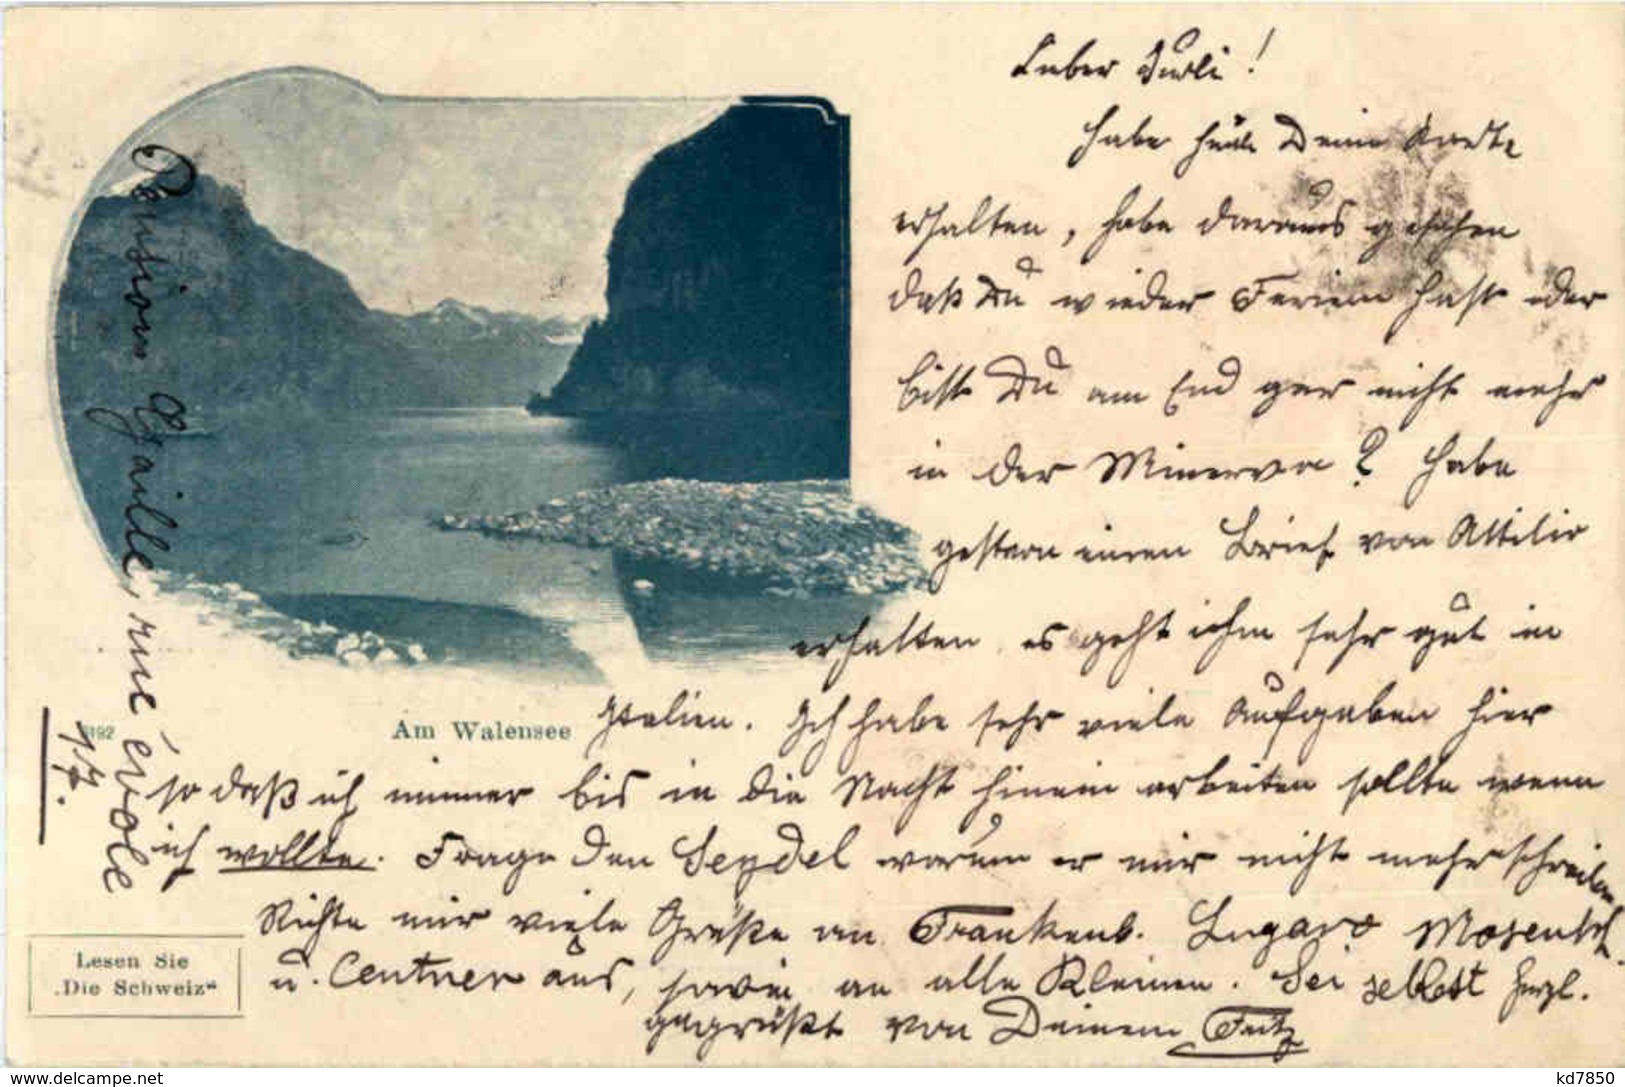 Lieber Burli!
habe heute Deine Karte
erhalten, habe daraus gesehen
daß Du wieder Ferien hast oder
bist Du am End gar nicht mehr
in der Minerva? Habe
gestern einen Brief von Attilio
erhalten, es geht ihm sehr gut in
Italien. Ich habe sehr viele Aufgaben hier
so daß ich immer bis in die Nacht hinein arbeiten sollte wenn
ich wollte. Frage den Seydel warum er mir nicht mehr schreibe
Richte mir viele Grüße an Frankenb. Lugaro
u. Centner aus, sowie an alle Kleinen. Sei selbst herzl.
gegrüßt von Deinem Fritz
Pension Gaille, rue évole
17.
Am Walensee
Lesen Sie
„Die Schweiz“
www.delcampe.net
kd7850